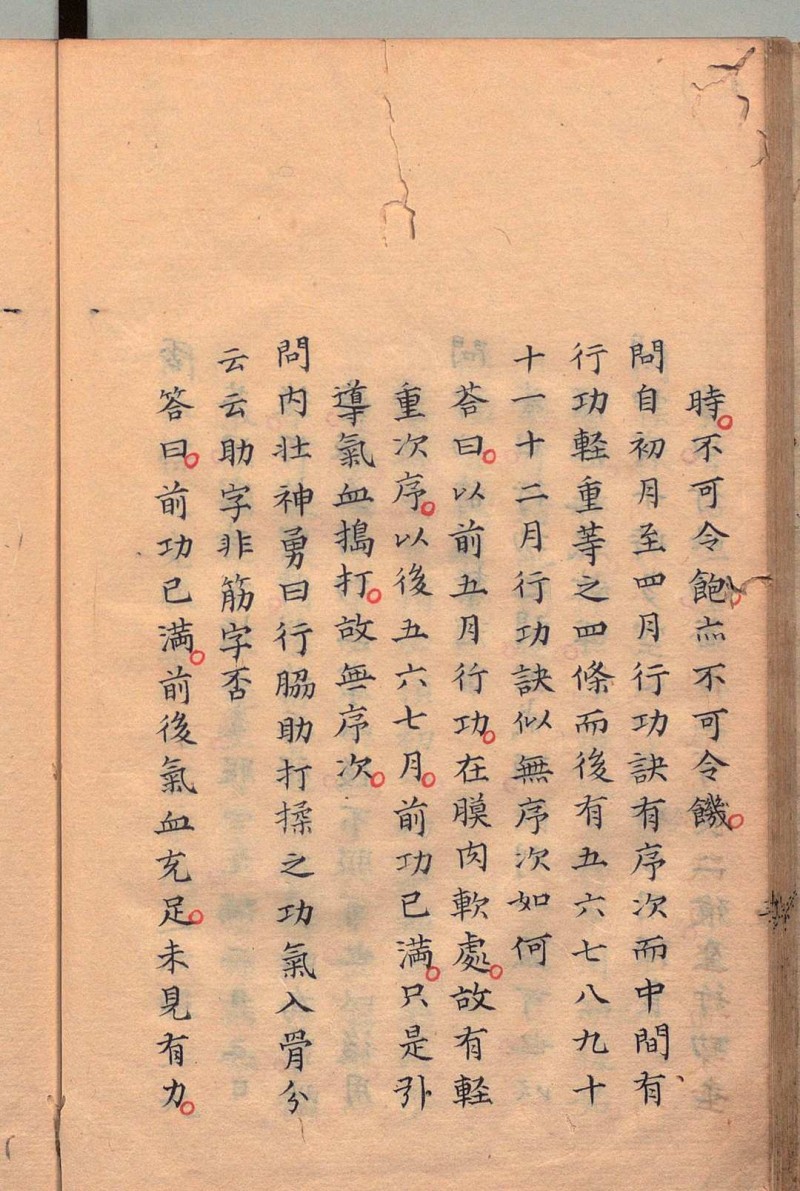 時。不可令飽。亦不可令饑。
問自初月至四月行功訣有序次而中間有
行功軽重䓁之四條而後有五六七八九十
十一十二月行功訣似無序次如何
荅曰。以前五月行功。在膜肉軟處。故有軽
重次序。以後五六七月。前功已滿。只是引
導氣血搗打。故無序次。
問内壮神勇曰行脇助打揉之功氣入骨分
云云助字非筋字否
答曰。前功已滿。前後氣血充足。未見有力。